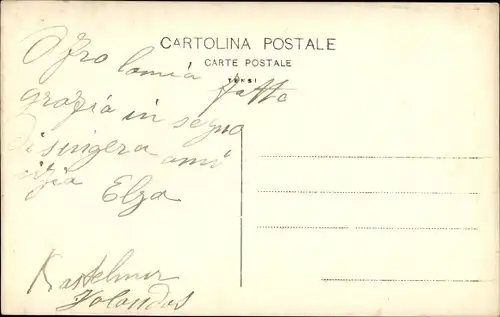 CARTOLINA POSTALE
CARTE POSTALE
Ofro la mia fotto
grazia in segno
di singera ami
cizia
Elza
Kastelmur